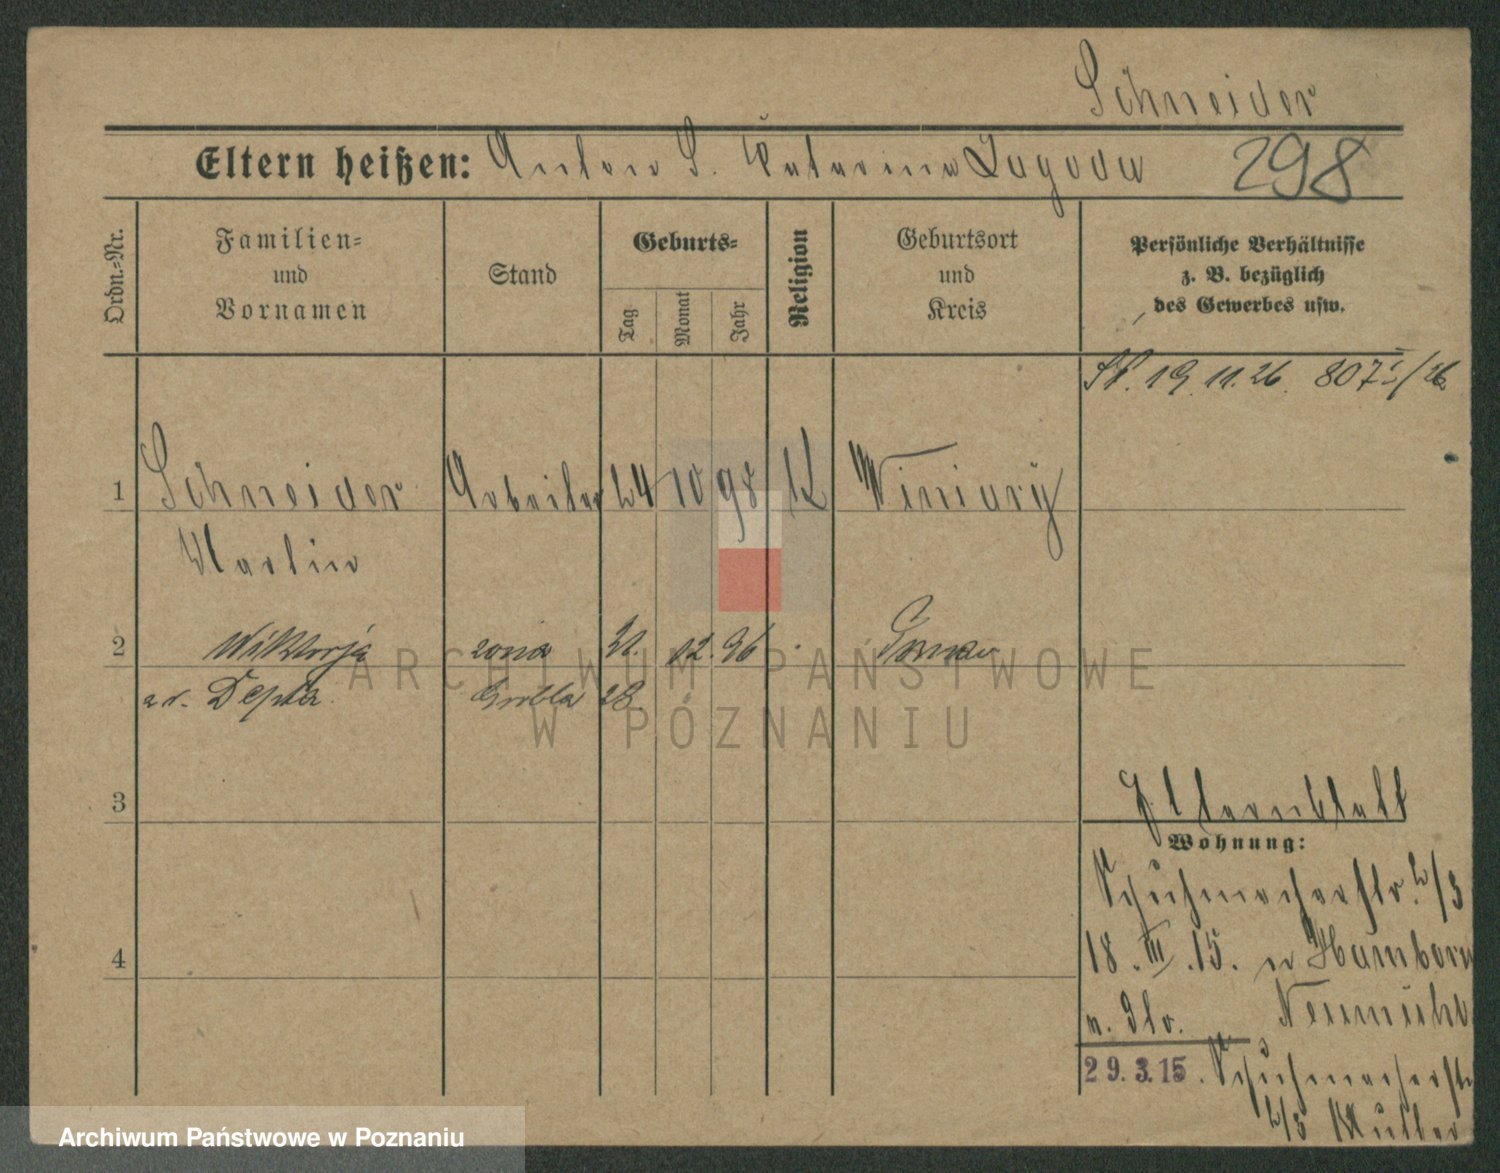 Schneider
Eltern heißen: Anton S. Katarina Jagoda 298
Ordn.=Nr.
Familien=
und
Vornamen
Stand
Geburts=
Tag
Monat
Jahr
Religion
Geburtsort
und
Kreis
Persönliche Verhältnisse
z. B. bezüglich
des Gewerbes usw.
19. 11. 26. 807 /26
1 Schneider Arbeiter 24 10 98 K Winiary
Martin
2 Wiktorja żona 21. 12. 96
Depta Grobla 28.
3
Elternblatt
Wohnung:
Schuhmacherstr. 2/3
4
18. III. 15. n Hamborn
Neumühl
29.3.15. Schuhmacherstr
2/3 Mutter
ARCHIWUM PAŃSTWOWE
W POZNANIU
Archiwum Państwowe w Poznaniu